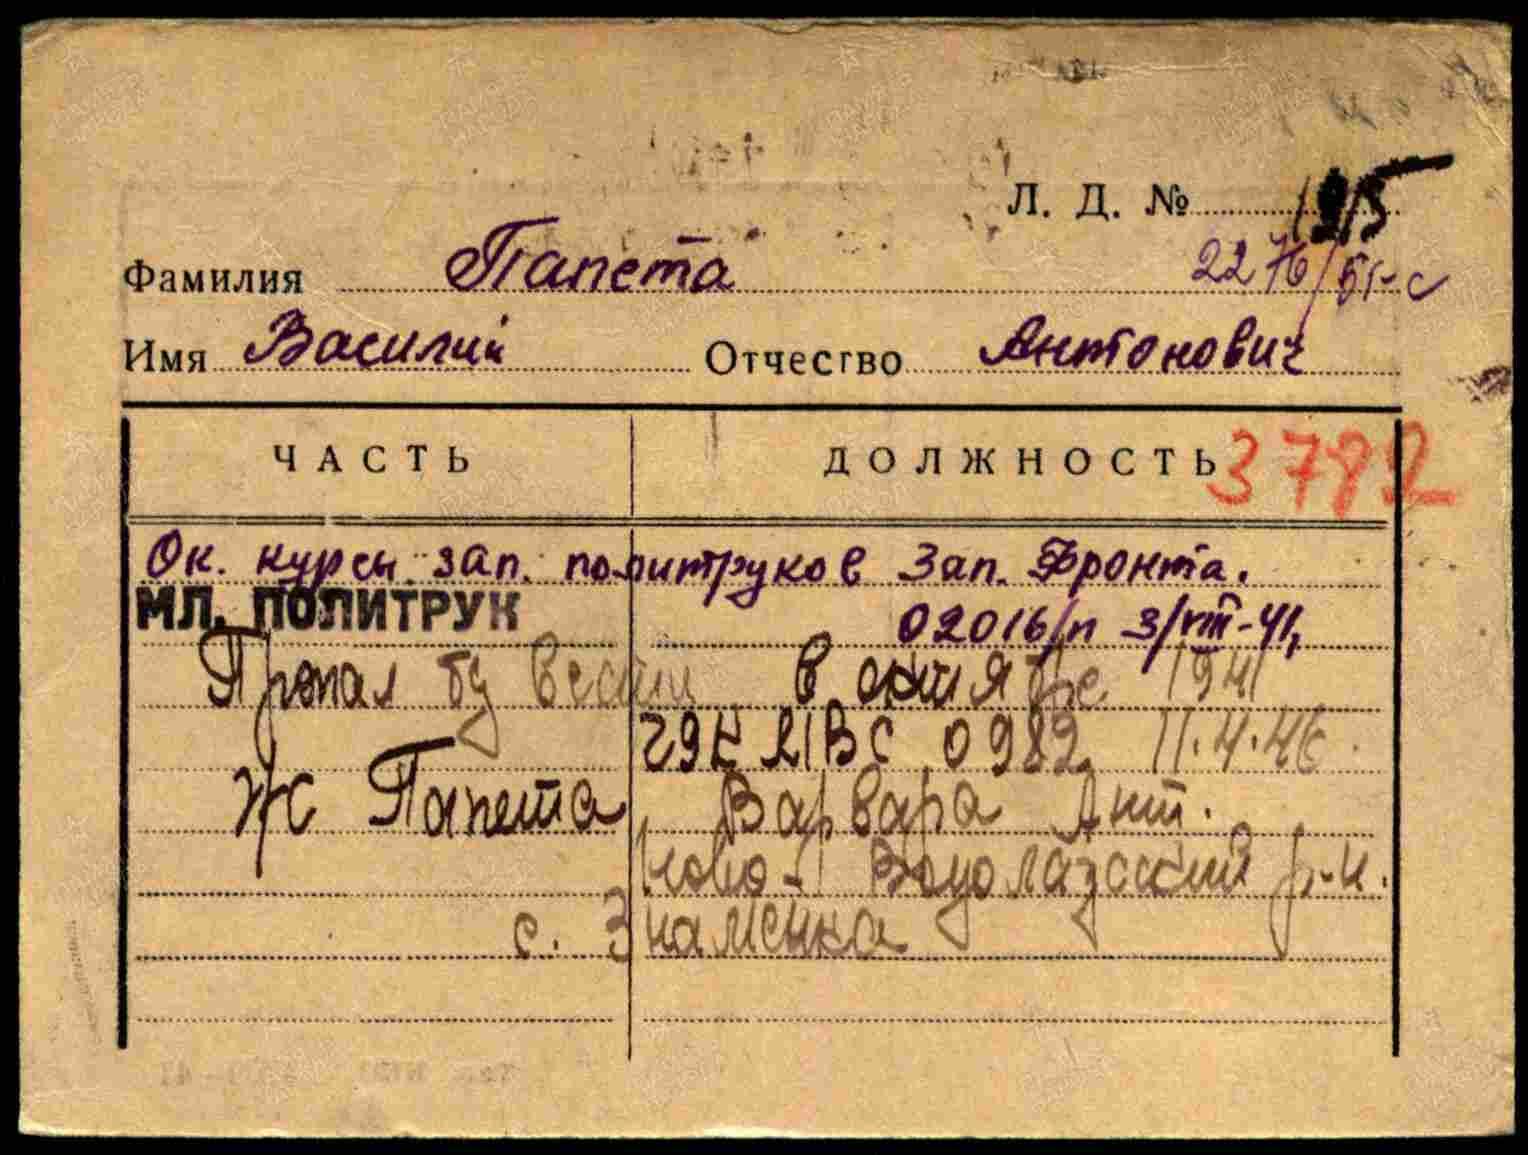 Л. Д. № 1915
Фамилия Папета 2276/51-с
Имя Василий Отчество Антонович
ЧАСТЬ ДОЛЖНОСТЬ 3782
Ок. курсы зап. политруков Зап. Фронта.
МЛ. ПОЛИТРУК 02016/п 3/VIII-41,
Пропал без вести в октябре 1941
ГУК МВС 0982 11.4.46.
ж Папета Варвара Ант.
Ново-Водолазский р-н.
с. Знаменка